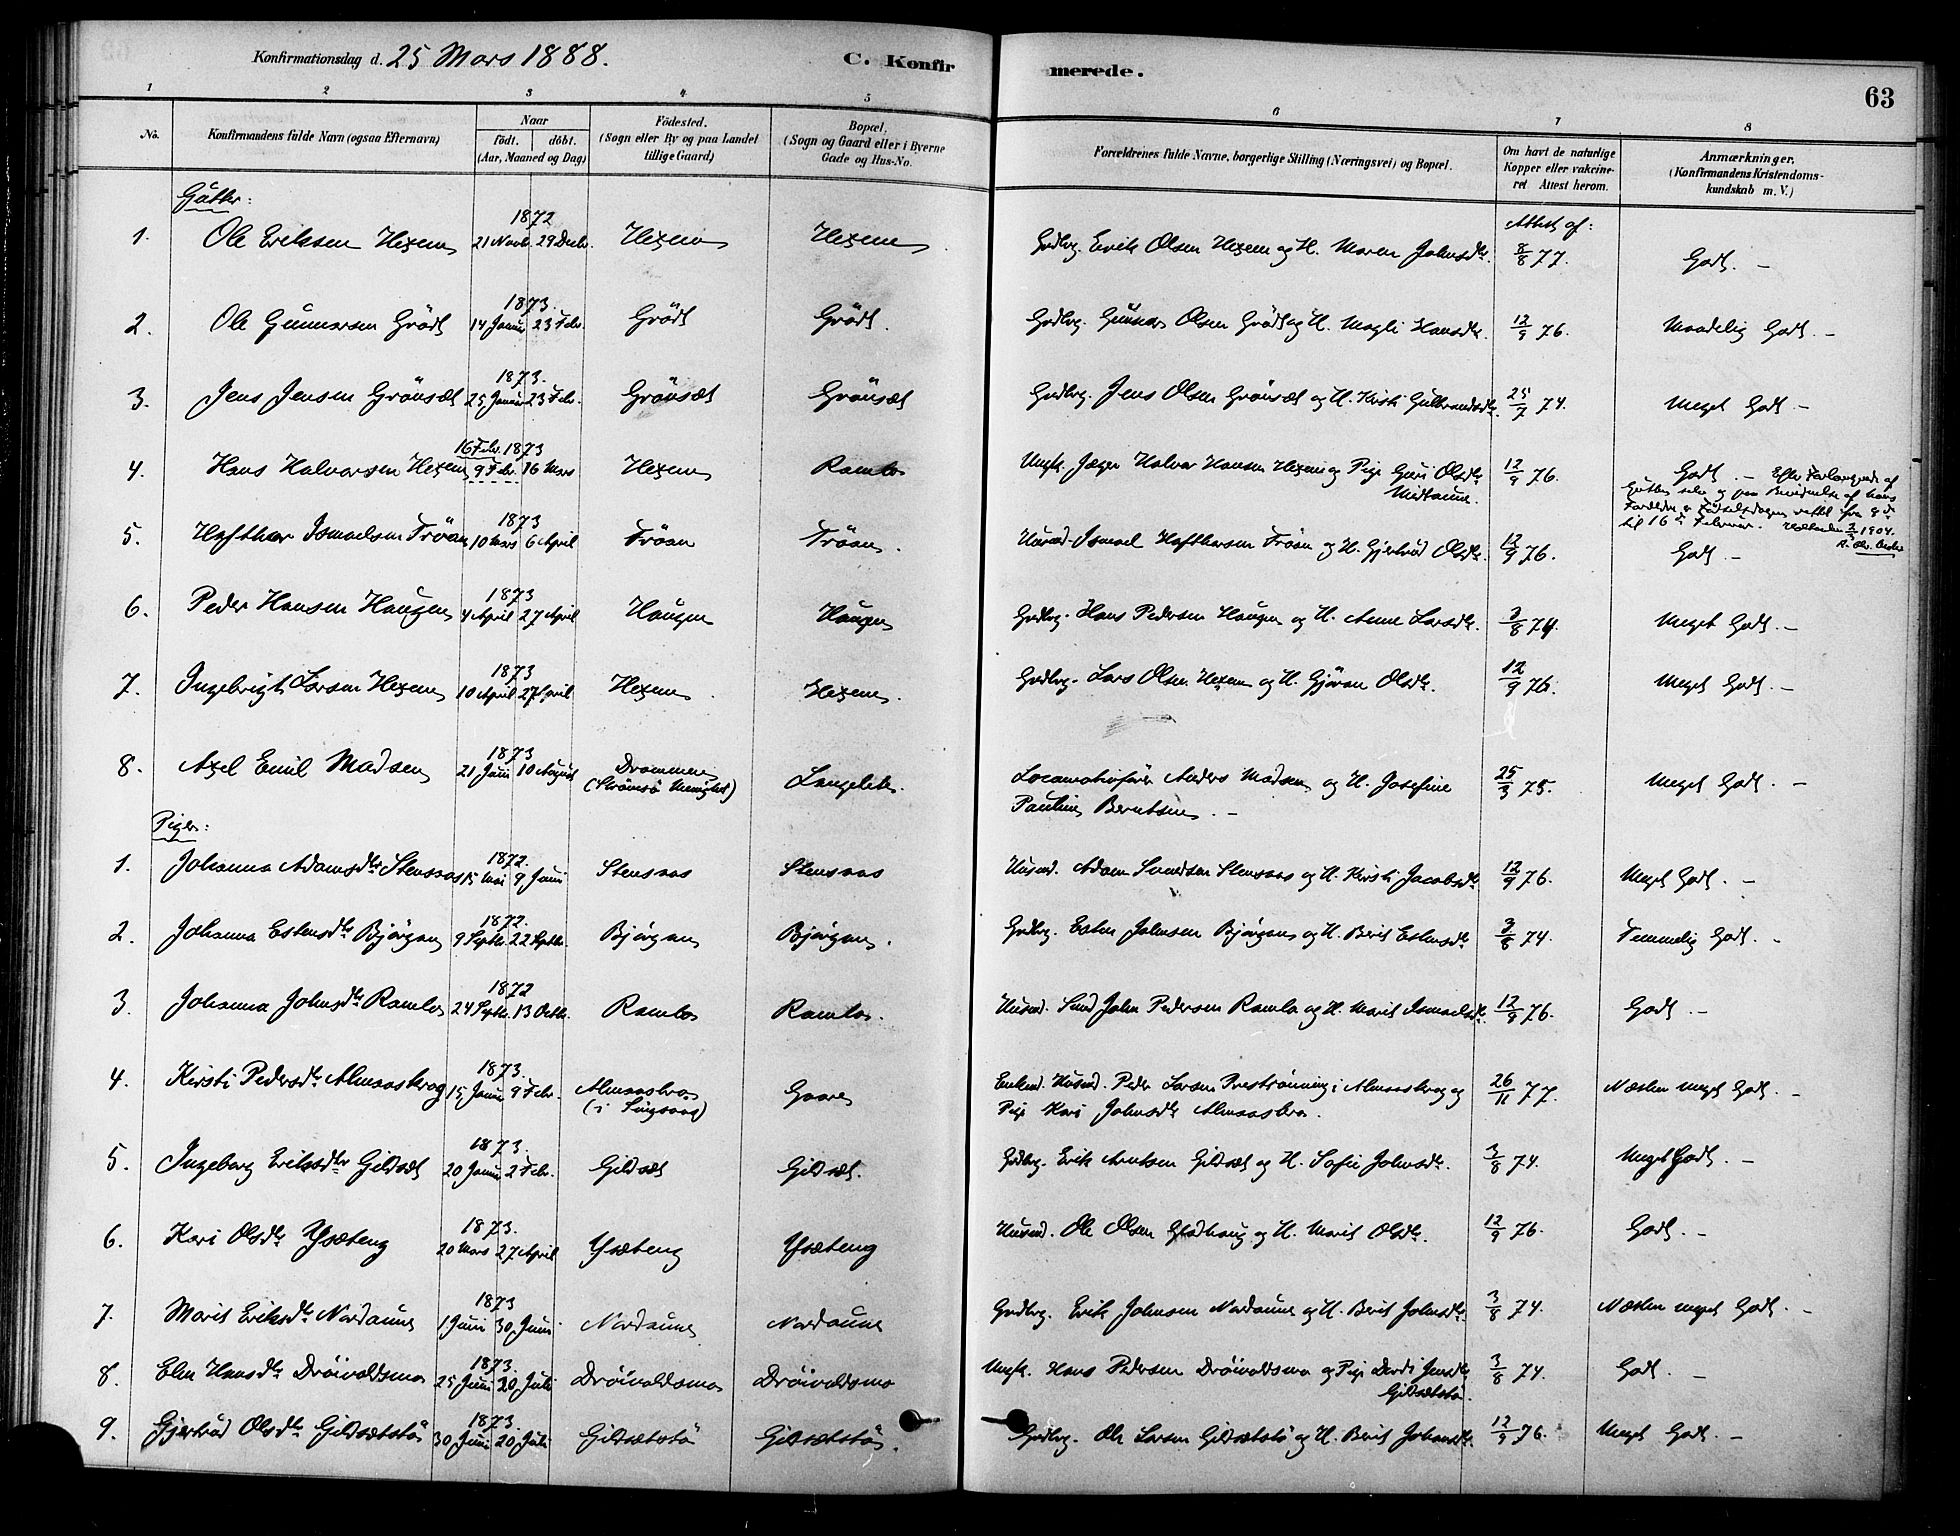 Konfirmationsdag d. 25 Mars 1888. C. Konfir merede. 63
1 2 3 4 5 6 7 8
No. Konfirmandens fulde Navn (ogsaa Efternavn) Naar født. døbt. (Aar, Maaned og Dag) Fødested. (Sogn eller By og paa Landet tillige Gaard) Bopæl. (Sogn og Gaard eller i Byerne Gade og Hus-No. Forældrenes fulde Navne, borgerlige Stilling (Næringsvei) og Bopæl. Om havt de naturlige Kopper eller vakcineret Attest herom. Anmærkninger. (Konfirmandens Kristendomskundskab m. V.)
Gutter:
Attest af:
1. Ole Eriksen Hexem 1872 21 Novb. 29 Decbr. Hexem Hexem Grdbrg. Erik Olsen Hexem og H. Maren Johnsdtr. 8/8 77. Godt. —
2. Ole Gunnarsen Grødt 1873. 14 Januar 23 Febr. Grødt Grødt. Grdbrg. Gunnar Olsen Grødt og H. Magli Hansdtr. 12/9 76. Maadelig Godt. —
3. Jens Jensen Grønsæt 1873. 25 Januar 23 Febr. Grønsæt Grønsæt Grdbrg. Jens Olsen Grønsæt og H. Kirsti Gulbrandsdtr. 25/7 74. Meget Godt —
4. Hans Halvorsen Hexem 16 Febr. 1873 9 Febr. 16 Mars Hexem Ramlo Ungk. Jæger Halvor Hansen Hexem og Pige Guri Olsdtr. Midtaune. 12/9 76. Godt. — Efter Forlangende af Gutten selv og paa Bevidnelse af hans Forældre er Fødselsdagen rettet fra 9de til 16de Februar. Holtaalen 1904.
5. Hafthor Ismaelsen Trøan 1873 10 Mars 6 April Trøan Trøan. Husmd. Ismael Hafthorsen Trøan og H. Gjertrud Olsdtr. 12/9 76. Godt —
6. Peder Hansen Haugen 1873 4 April 27 April Haugen Haugen Grdbrg. Hans Pedersen Haugen og H. Anne Larsdtr. 3/8 74. Meget Godt. —
7. Ingebrigt Larsen Hexem 1873 10 April 27 April Hexem. Hexem. Grdbrg. Lars Olsen Hexem og H. Gjøran Olsdtr. 12/9 76. Meget Godt. —
8. Axel Emil Madsen 1873 21 Juni 10 August Drammen (Strømsø Menighed) Langelete. Locomotivfører Anders Madsen og H. Josefine 25/3 75. Meget Godt. —
Pauline Berntsen. —
Piger:
1. Johanna Adamsdtr Stensaas 1872. 15 Mai 9 Juni Stensaas Stensaas Husmd. Adam Svendsen Stensaas og H. Kirsti Jacobsdtr 12/9 76. Meget Godt. —
2. Johanna Estensdtr Bjørgan 1872. 9 Septbr. 22 Septbr. Bjørgan Bjørgan. Grdbrg. Esten Johnsen Bjørgan og H. Berit Estensdtr 3/8 74. Temmelig Godt. —
3. Johanna Johnsdtr Ramlo 1872 24 Septbr. 13 Octbr. Ramlo Ramlo. Husmd. Smed John Pedersen Ramlo og H. Marit Ismaelsdtr 12/9 76. Godt. —
4. Kirsti Pedersdtr Almaaskrog 1873. 15 Januar 9 Febr. Almaasbro (i Singsaas) Gaare Enkemd. Husmd. Peder Larsen Prestrønning i Almaaskrog og 26/11 77. Næsten meget Godt. —
Pige Kari Johnsdtr Almaasbro.
5. Ingeborg Eriksdtr Gildsæt 1873. 20 Januar 2 Febr. Gildsæt Gildsæt. Grdbrg. Erik Arntsen Gildsæt og H. Sofie Johnsdtr. 3/8 74. Meget Godt. —
6. Kari Olsdtr Ysæteng 1873. 20 Mars 27 April Ysæteng Ysæteng Husmd. Ole Olsen Gladhaug og H. Marit Olsdtr. 12/9 76. Godt. —
7. Marit Eriksdtr Nordaune 1873 1 Juni 30 Juni Nordaune Nordaune Grdbrg. Erik Johnsen Nordaune og H. Berit Johnsdtr. 3/8 74. Næsten meget Godt. —
8. Elen Hansdtr Drøivoldsmo 1873. 25 Juni 20 Juli Drøivoldsmo Drøivoldsmo Ungk. Hans Pedersen Drøivoldsmo og Pige Dordi Jensdtr Gildsætstø. 3/8 74. Godt. —
9. Gjertrud Olsdtr Gildsætstø 1873. 30 Juni 20 Juli Gildsætstø Gildsætstø. Grdbrg. Ole Larsen Gildsætstø og H. Berit Johansdtr. 12/9 76. Meget Godt. —